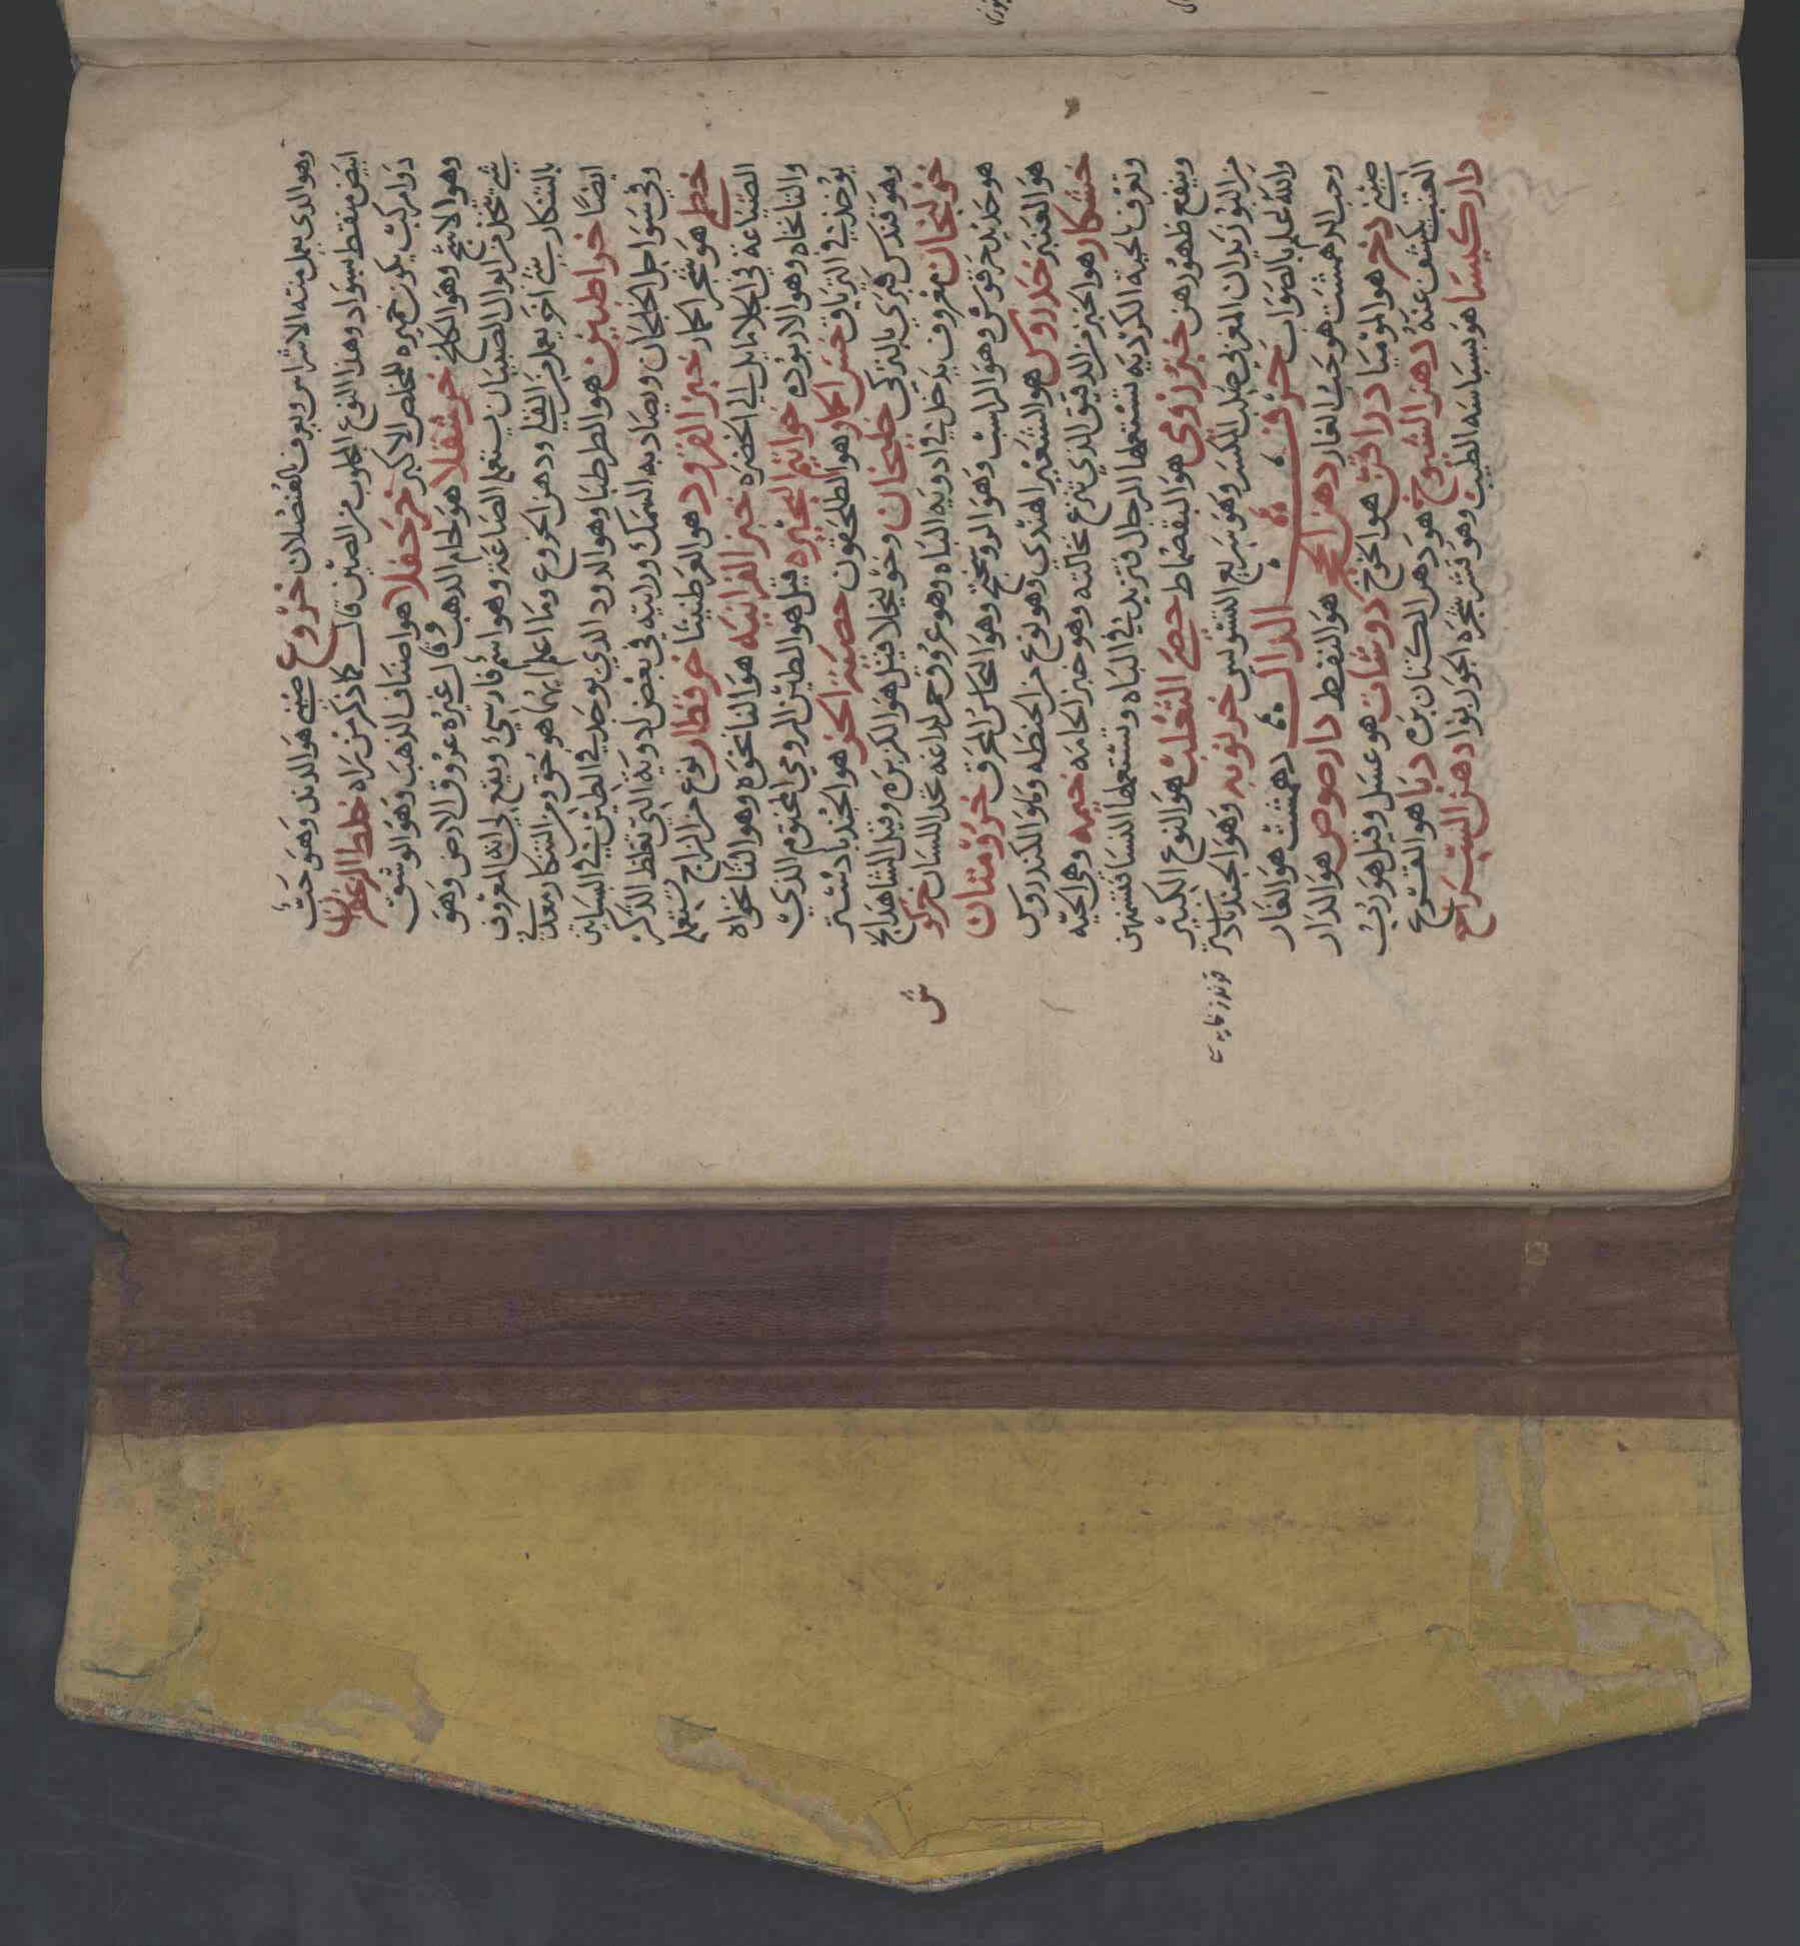 وهو الدي يعمل منه الاشراس ويعرف بالعنصلان خروع صيني هو الدند وهو حب
ابيض منقط بسواد وهذا النوع المجلوب من الصين قال كما ذكر من راه خلط الزعفران
دوا مركب يكون خميره للخلاص الاكبر خرحفلا هو اصناف الذهب وهو الوشق
وهو الاشج وهو الكلخ خرشقلا هو لحام الدهب وقال غيره عروق الارض وهو
شي يتخذ من ابوال الصبيان يستعمله الصاغة وهو اسم فارسي ويقع لي انه المعروف
بالتنكار شي اخر يعمل من القلي ودهن الخروع وما اعلم ايهما هو حق ومن التنكار معدني
ايضا خراطين هو الطرطيا وهو الدود الدي يوجد في الطين في البساتين
وفي سواحل الخلجان ويصاد به السمك ورايته في بعض ادوية التي تغلظ الذكر
خطمي هو شجر الحمار خبز القرود هو العرطنيثا خرقطار نوع من الزاج يستعمله
الصناعة في الحلا مايل الى الخضره خبز الفرانيه هو النانخوه وهو الناخواه
والنانخاه وهو الاربوده خواتيم البحيره قيل هو الطين الرومي المختوم الذي
يوخذ في الترياق خس الحمار هو الطلحقون خصية البحر هو الجند بادستر
وهو قندس قبري بالتركي خليخان وخو ليخلا قيل هو الكزبره وقيل الشاهدانج
خولنجان معروف يدخل في ادوية الباه وهو عروق حمر لداغه تحد اللسان خركو
هو حديد مرقوش وهو الراسب وهو الروسختج وهو النحاس المحرق خروميان
هو العنبر خندروس هو الشعير الهندي وهو نوع من الحنطه وقالو الكندروس
خشكار هو الخبز من الدقيق الذي تنزع نخالته وهو خبز الحامه خيمه وهي الحيه
وتعرف بالحية الكرديه تستعملها الرجال فتزيد في الباه وتستعملها النسا فتسمنهن
وينفع ظهورهن خبز رومي هو البقصماط خصى الثعلب هو النوع الكبير
من البوزيدان المغربي صلب المكسر وهو سريع التسويس خرنوبه وهو الجند بادستر
والله اعلم بالصواب حرف الدال دهمشت هو الغار
وحب الدهمشت هو حب الغار دهن الحجر هو النفط دارصوص هو الدار
صيني دخر هو الموميا دراقن هو الخوخ دوشات هو عسل وقيل هو رب
العنب يكشف عنه دهن الشيوخ هو دهن الكتان بزره دبا هو القرع
دار كيسا هو بسباسه الطيب وهو قشر شجره الجوز بوا دهن السراج
ش